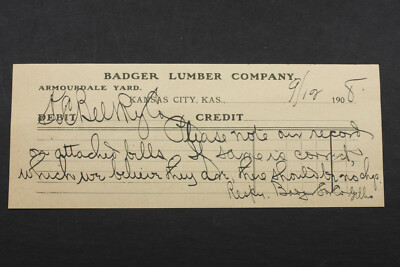 BADGER LUMBER COMPANY
ARMOURDALE YARD.
KANSAS CITY, KAS., 9/12 1908.
DEBIT CREDIT
Please note our record
on attached bills. If same is correct,
which we believe they are, there should be no chg.
Respy. Badger